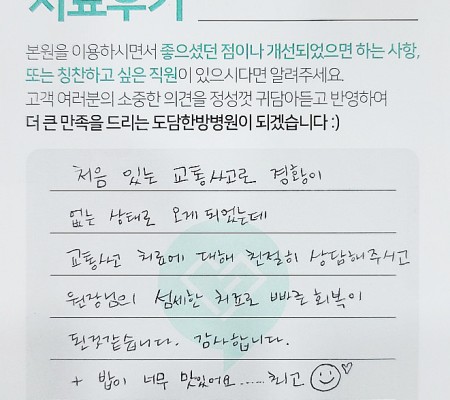 치료후기
본원을 이용하시면서 좋으셨던 점이나 개선되었으면 하는 사항,
또는 칭찬하고 싶은 직원이 있으시다면 알려주세요.
고객 여러분의 소중한 의견을 정성껏 귀담아듣고 반영하여
더 큰 만족을 드리는 도담한방병원이 되겠습니다 :)
처음 있는 교통사고로 경황이
없는 상태로 오게 되었는데
교통사고 치료에 대해 친절히 상담해주시고
원장님의 섬세한 치료로 빠른 회복이
된것같습니다. 감사합니다.
+ 밥이 너무 맛있어요 ...... 최고